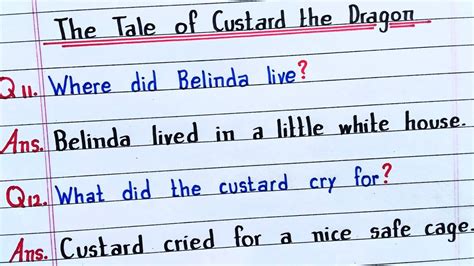 The Tale of Custard the Dragon
Q11. Where did Belinda live?
Ans. Belinda lived in a little white house.
Q12. What did the custard cry for?
Ans. Custard cried for a nice safe cage.